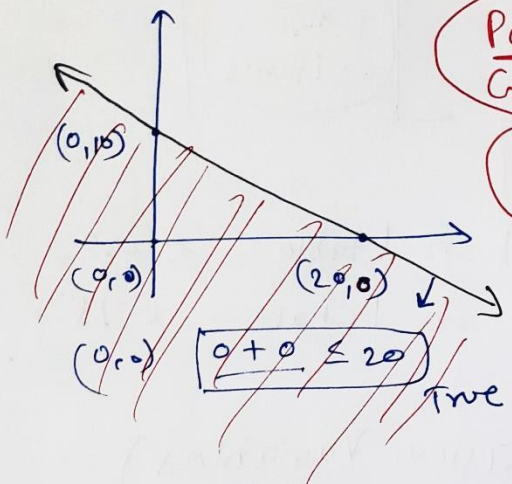 (0,10)
(0,0)
(20,0)
(0,0)
0 + 0 ≤ 20
True